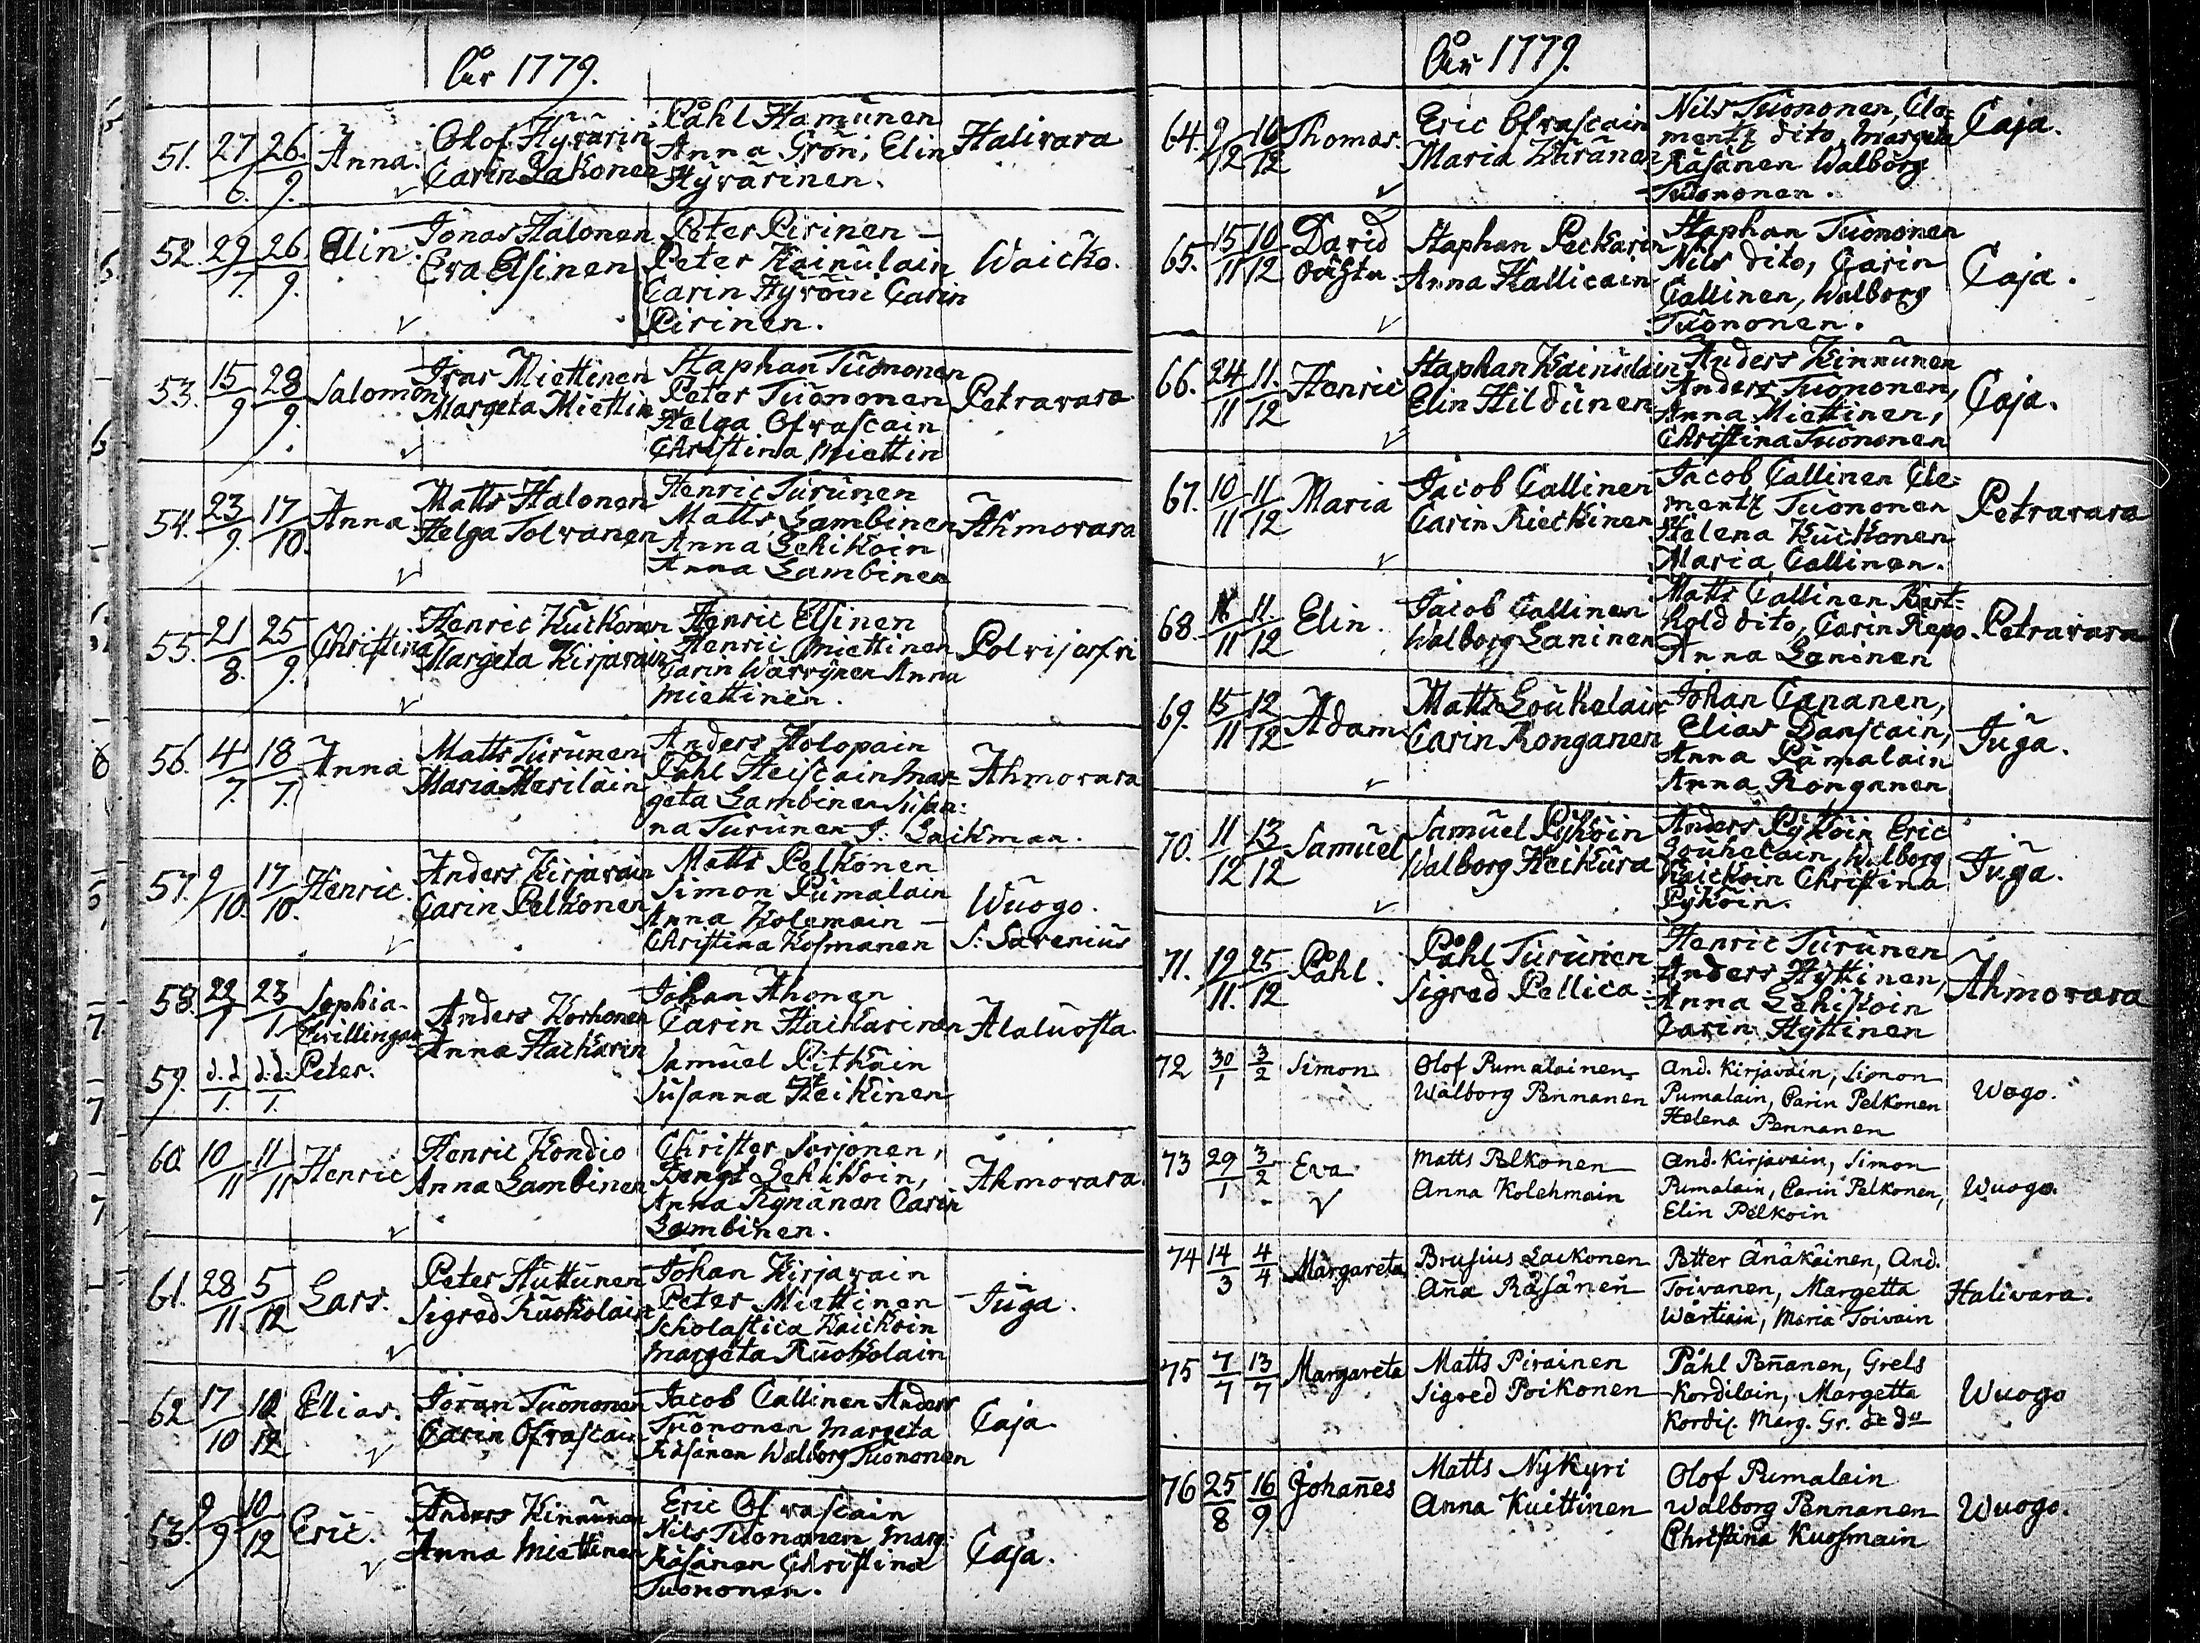 År 1779.
51. 27/6. 26./9. Anna. Olof Hyvärin Påhl Hamunen Halivara
Carin Lakonen Anna Grön, Elin
Hyvärinen.
52. 29/7. 26/9. Elin. Jonas Halonen Peter Pirinen Waicko.
Eva Elsinen Peter Kainulain
Carin Hyröin Carin
Pirinen.
53. 15/9 28/9. Salomon Miettinen Staphan Tuononen Petravara
Margeta Miettin Peter Tuononen
Helga Ofvascain
Christina Miettin
54. 23/9. 17/10. Anna Matts Halonen Henric Turunen Ahmovara
Helga Tolvanen Matts Lambinen
Anna Lehikoin
Anna Lambinen
55. 21/8. 25/9. Christina Henric Kuckonen Henric Elsinen Polvijerfvi
Margeta Kirjavain Henric Miettinen
Carin Wärrynen Anna
Miettinen.
56. 4/7. 18/7. Anna Matts Turunen Anders Holopain Ahmovara
Maria Meriläin Påhl Heiscain Mar=
geta Lambinen Susan=
na Turunen J: Laihman.
57. 9/10. 17/10. Henric. Anders Kirjavain Matts Pelkonen Wuogo.
Carin Pelkonen Simon Pumalain
Anna Kolemain
Christina Kosmanen S: Sarenius
58. 22/7 23/7. Sophia Anders Korhonen Johan Ahonen Alaluosta
Tvillingar Anna Hackarin Carin Hackarinen
59. d.d/7. d.d./7. Peter. Samuel Pitkäin
Susanna Heikinen
60. 10/11 11/11 Henric Henric Kondio Christer Sorjonen, Ahmovara.
Anna Lambinen Bengt Lehikoin,
Anna Tignänen Carin
Lambinen.
61. 28/11. 5/12 Lars. Peter Huttunen Johan Kirjavain Juga.
Sigred Ruokolain Peter Miettinen
Scholastica Kaickoin
Margeta Ruokolain
62 17/10 10/12 Elias. Jöran Tuononen Jacob Callinen Anders Caja
Carin Ofvascain Tuononen Margeta
Räsänen Walborg Tuononen
63. 9/9 10/12 Eric. Anders Kinnunen Eric Ofvascain Caja.
Anna Miettinen Nils Tuononen Marg:
Räsänen Christina
Tuononen.
År 1779.
64. 9/12 10/12 Thomas. Eric Ofvascain Nils Tuononen, Cle= Caja.
Maria Käränen mentz dito, Margeta
Räsänen Walborg
Tuononen.
65. 15/11 10/12 David Staphan Peckarin Staphan Tuononen Caja.
oächta Anna Hallicain Nils dito, Carin
Callinen, Walborg
Tuononen.
66. 24/11 11./12 Henric Staphan Kainulain Anders Kinnunen Caja.
Elin Hildunen Anders Tuononen,
Anna Miettinen,
Christina Tuononen
67. 10/11 11/12 Maria Jacob Callinen Jacob Callinen Cle= Petravara
Carin Rieckinen mentz Tuononen
Helena Kuckonen
Maria Callinen.
68. 11. 11/12 Elin. Jacob Callinen Matts Callinen Bert= Petravara
Walborg Laninen hold dito, Carin Repo
Anna Laninen
69. 15/11 12/12 Adam Matts Louhelain Johan Capanen, Juga.
Carin Ronganen Elias Danscain,
Anna Pumalain
Anna Ronganen
70. 11/12 13/12 Samuel Samuel Pyköin Anders Pyköin Eric Juga.
Walborg Heikura Louhelain, Walborg
Kaickoin Christina
Pyköin.
71. 19/11. 25/12 Påhl. Påhl Turunen Henric Turunen Ahmovara
Sigred Pellica Anders Hyttinen,
Anna Lehikoin
Carin Hyttinen
72 30/1 3/2 Simon Olof Pumalainen And. Kirjavain, Simon Wogo.
Walborg Pennanen Pumalain, Carin Pelkonen
Helena Pennanen
73 29/1 3/2 Eva Matts Pelkonen And. Kirjavain, Simon Wuogo.
Anna Kolehmain Pumalain, Carin Pelkonen,
Elin Pelkoin
74 14/3 4/4 Margareta Brusius Lackonen Petter Änäkäinen, And. Halivara.
Aña Räsänen Toivanen, Margetta
Wärtiain, Maria Toivain
75 7/7 13/7 Margareta Matts Pirainen Påhl Peñanen, Grels Wuogo
Sigred Poikonen Kordilain, Margetta
Kordi. Marg. Gr.
76 25/8 16/9 Johañes Matts Nykyri Olof Pumalain Wuogo.
Anna Kuittinen Walborg Pennanen
Christina Kuosmain